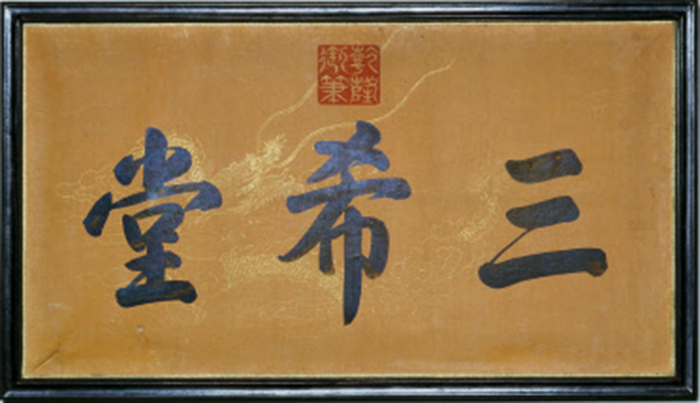 三希堂
乾隆
御筆